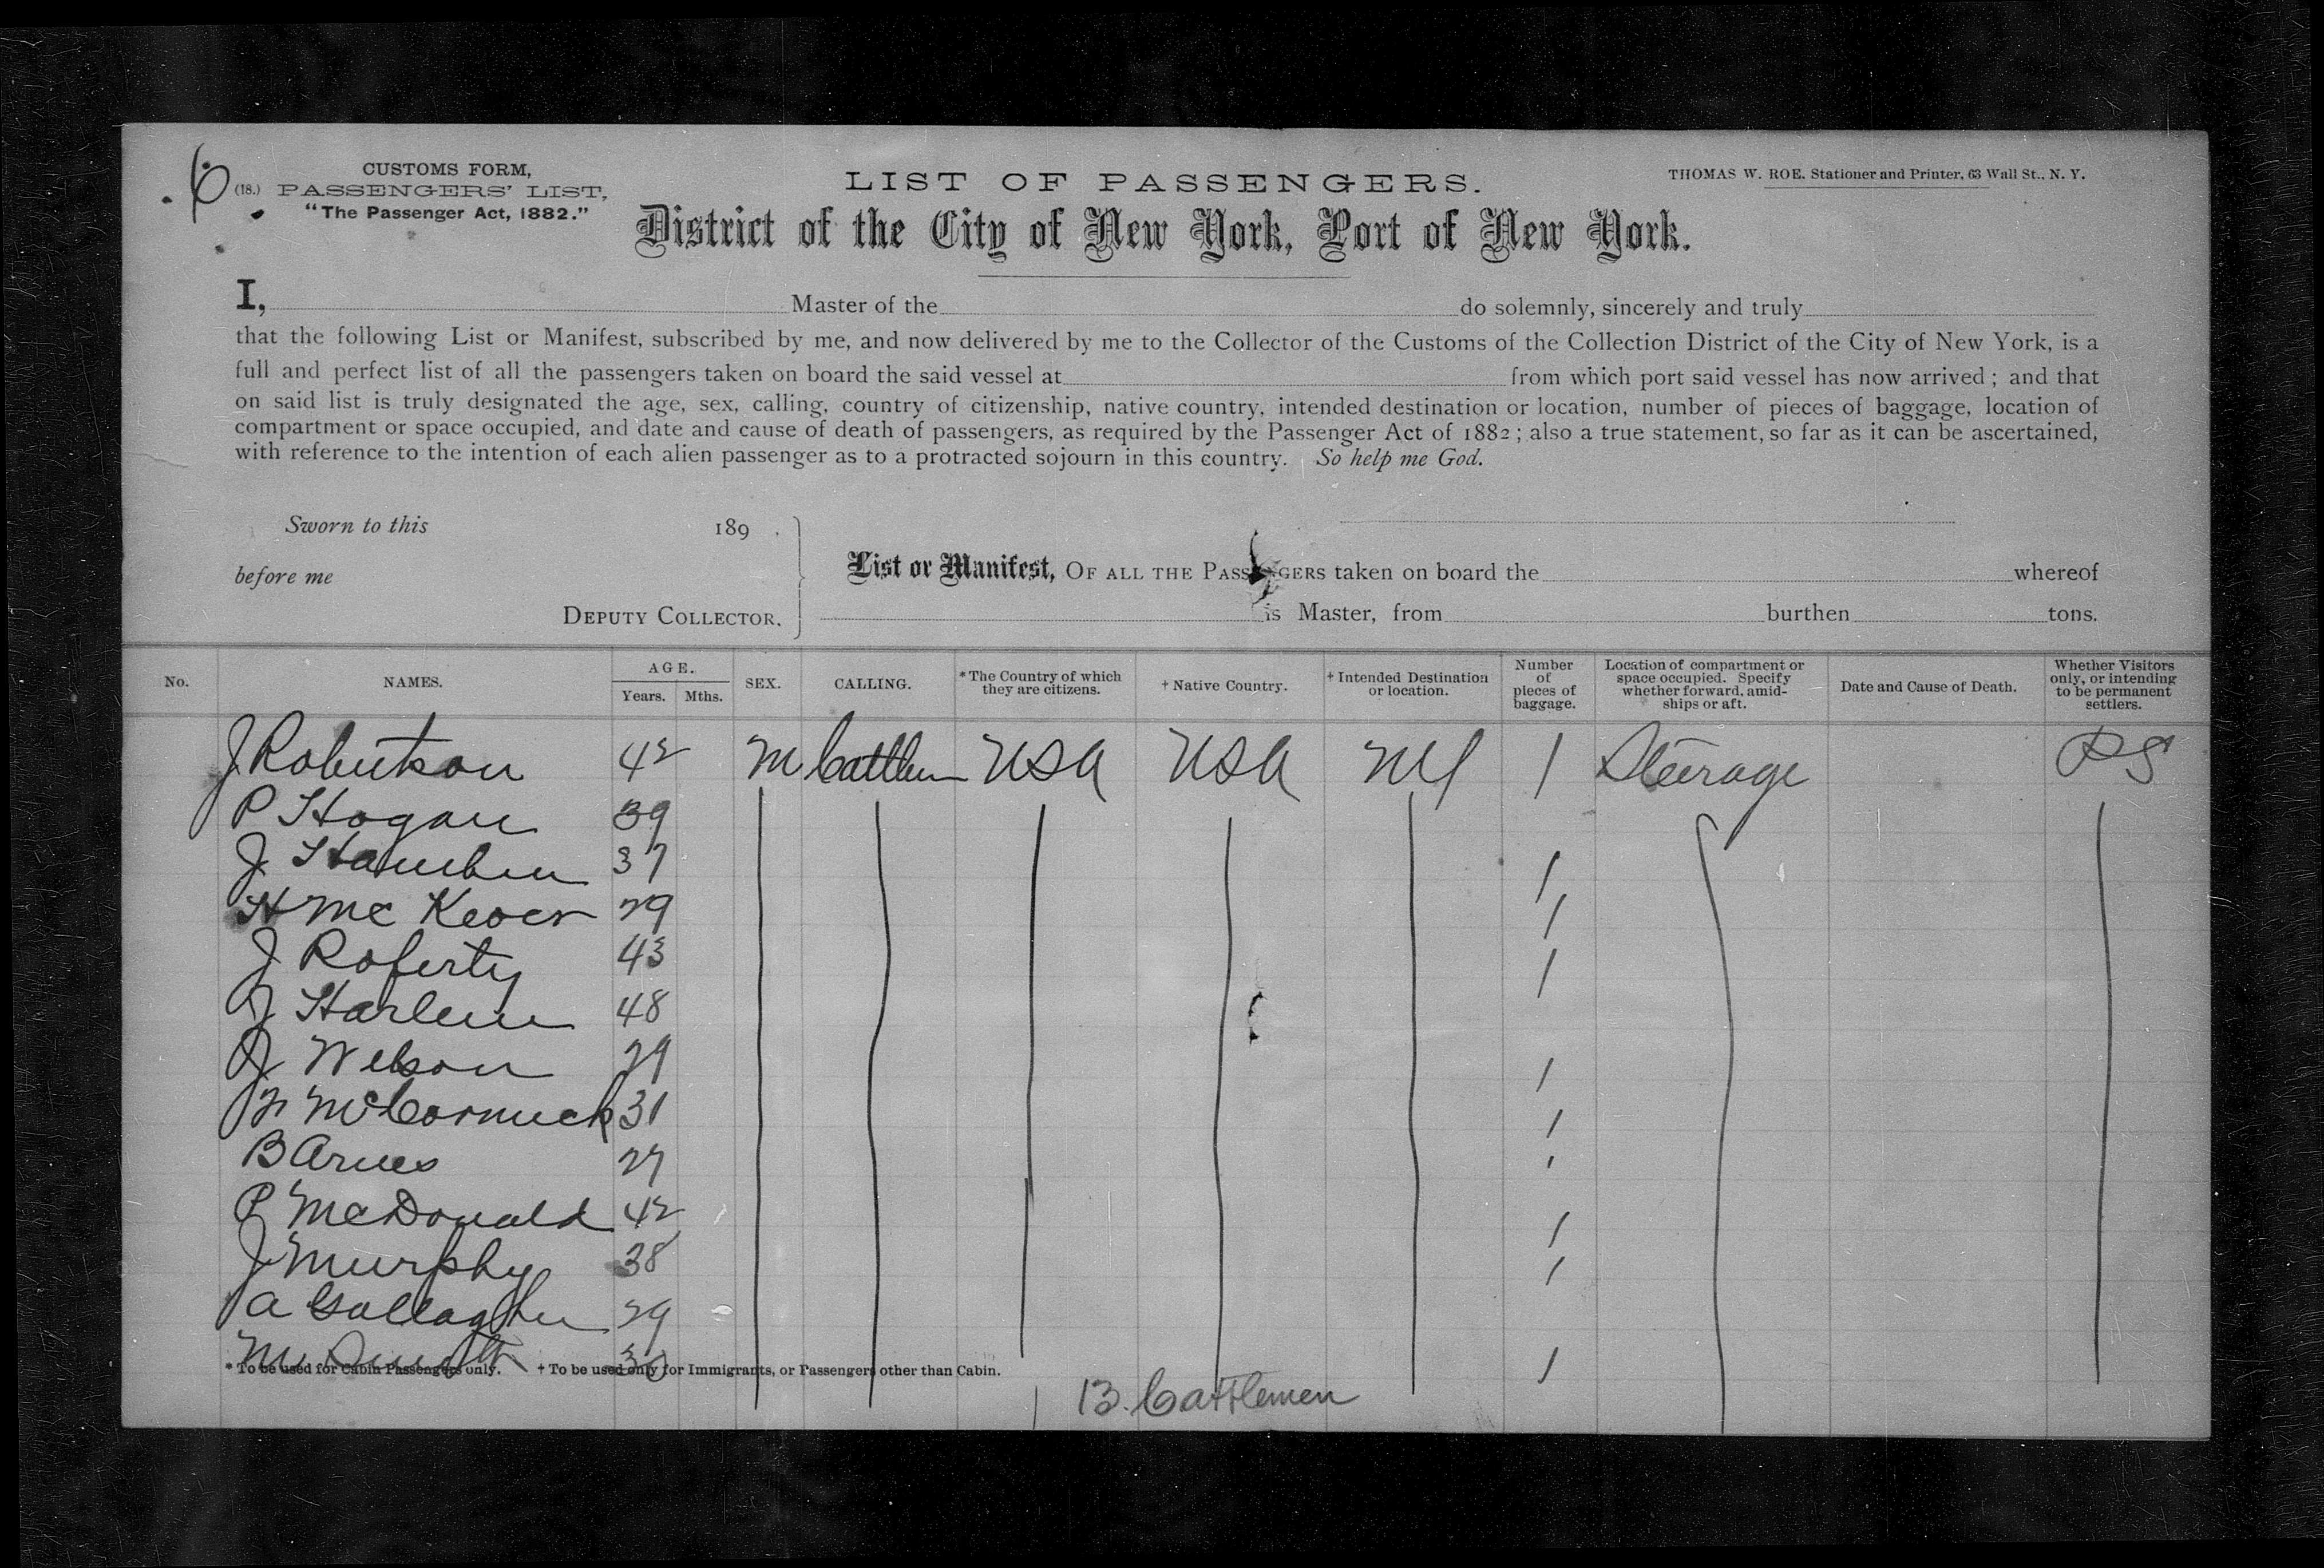 6
(18.)
CUSTOMS FORM,
PASSENGERS' LIST,
"The Passenger Act, 1882."
LIST OF PASSENGERS.
THOMAS W. ROE. Stationer and Printer, 63 Wall St., N. Y.
District of the City of New York, Port of New York.
I, Master of the do solemnly, sincerely and truly
that the following List or Manifest, subscribed by me, and now delivered by me to the Collector of the Customs of the Collection District of the City of New York, is a
full and perfect list of all the passengers taken on board the said vessel at from which port said vessel has now arrived; and that
on said list is truly designated the age, sex, calling, country of citizenship, native country, intended destination or location, number of pieces of baggage, location of
compartment or space occupied, and date and cause of death of passengers, as required by the Passenger Act of 1882; also a true statement, so far as it can be ascertained,
with reference to the intention of each alien passenger as to a protracted sojourn in this country. So help me God.
Sworn to this 189 .
before me
DEPUTY COLLECTOR.
List or Manifest, OF ALL THE PASSENGERS taken on board the whereof
is Master, from burthen tons.
No. NAMES. AGE. Years. Mths. SEX. CALLING. *The Country of which they are citizens. † Native Country. † Intended Destination or location. Number of pieces of baggage. Location of compartment or space occupied. Specify whether forward, amidships or aft. Date and Cause of Death. Whether Visitors only, or intending to be permanent settlers.
J Robertson 42 M Cattlem USA USA NY 1 Steerage PS
P Hogan 39
J 37 1
H McKever 29 1
J Roferty 43 1
J Harlem 48
J Welson 29 1
McCormick 31 1
B Arnes 27 1
P McDonald 42 1
J Murphy 38 1
A Gallagher 29
M 30 1
* To be used for Cabin Passengers only. † To be used only for Immigrants, or Passengers other than Cabin.
13. Cattlemen